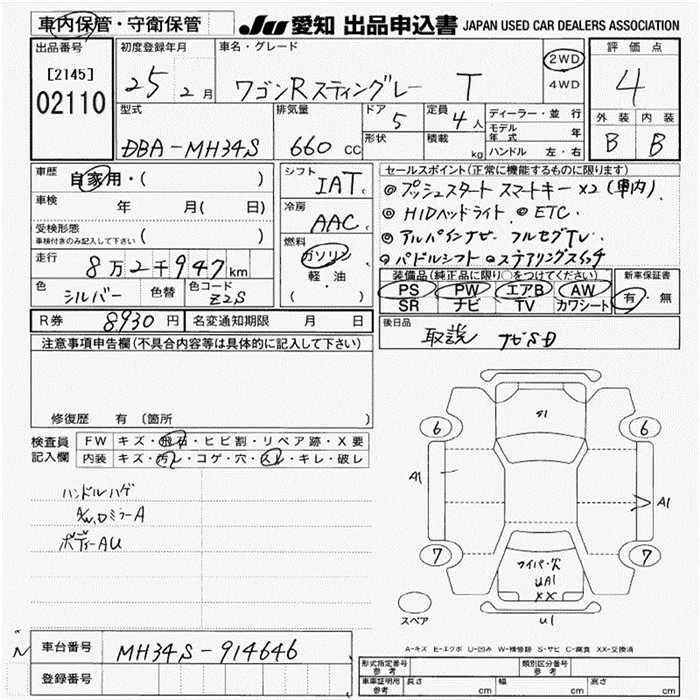 車内保管・守衛保管
JU 愛知 出品申込書 JAPAN USED CAR DEALERS ASSOCIATION
出品番号 [2145] 02110
初度登録年月 25 2月
車名・グレード ワゴンRスティングレー T
2WD 4WD
評価点 4
外装 B 内装 B
型式 DBA-MH34S
排気量 660 cc
ドア 5
形状
定員 4人
積載 kg
ディーラー・並行
モデル年式 年
ハンドル 左・右
車歴 自家用・( )
車検 年 月( 日)
受検形態 車検付きのみ記入して下さい ( )
走行 8万2千947km
色 シルバー 色替 色コード Z2S
シフト IAT
冷房 AAC
燃料 ガソリン 軽・油 ( )
セールスポイント(正常に機能するものに限ります)
◎プッシュスタート スマートキー×2(車内)
◎HIDヘッドライト ◎ETC
◎アルパインナビ フルセグTV
◎パドルシフト ◎ステアリングスイッチ
装備品(純正品に限り○をつけてください)
PS PW エアB AW
SR ナビ TV カワシート
新車保証書 有・無
R券 8930円 名変通知期限 月 日
後日品 取説 ナビSD
注意事項申告欄(不具合内容等は具体的に記入して下さい)
修復歴 有 (箇所 )
検査員記入欄
FW キズ・飛石・ヒビ割・リペア跡・X要
内装 キズ・汚レ・コゲ・穴・スレ・キレ・破レ
ハンドルハゲ
ボディーAU
S1
6 6
A1 A1
7 7
ワイパー穴
UA1
XX
U1
スペア
A-キズ E-エクボ U-凹み W-補修跡 S-サビ C-腐食 XX-交換済
車台番号 MH34S-914646
登録番号
形式指定番号 参考 類別区分番号 参考
車庫証明用 参考 長さ cm 幅 cm 高さ cm